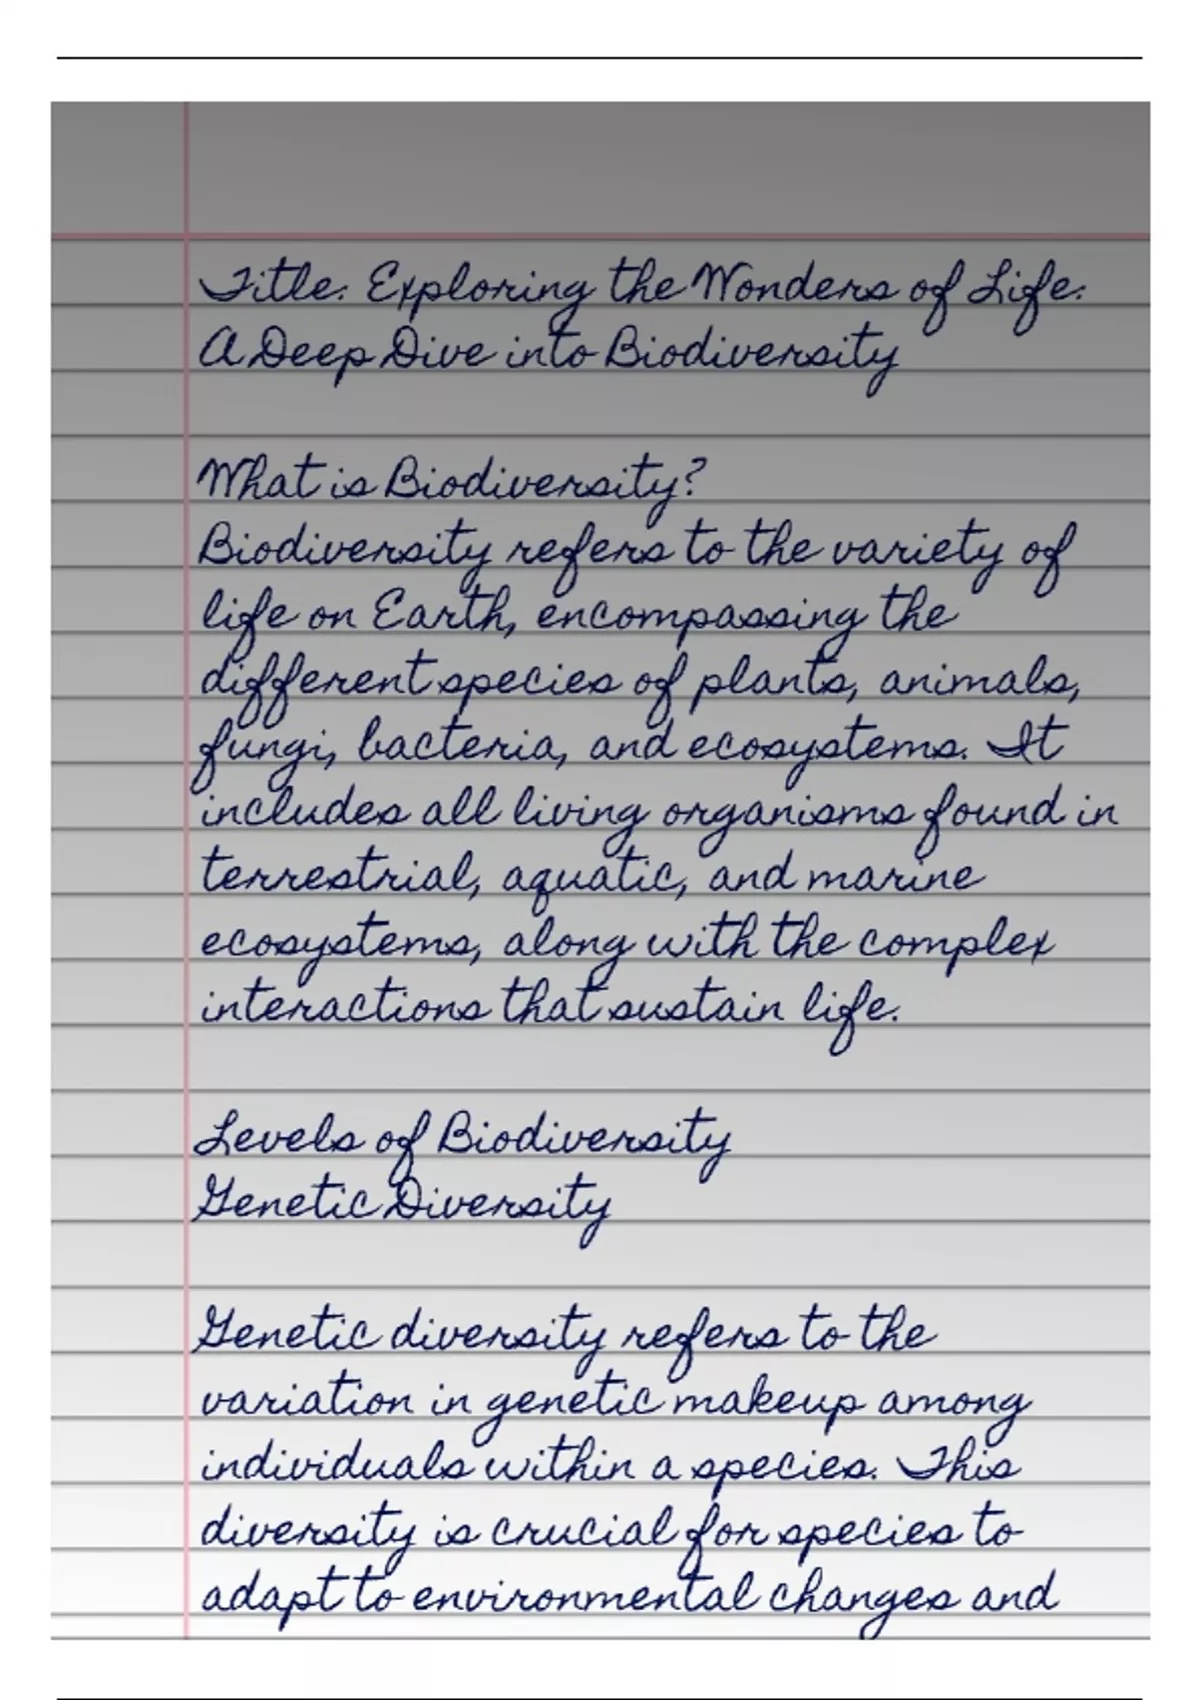 Title: Exploring the Wonders of Life:
A Deep Dive into Biodiversity
What is Biodiversity?
Biodiversity refers to the variety of
life on Earth, encompassing the
different species of plants, animals,
fungi, bacteria, and ecosystems. It
includes all living organisms found in
terrestrial, aquatic, and marine
ecosystems, along with the complex
interactions that sustain life.
Levels of Biodiversity
Genetic Diversity
Genetic diversity refers to the
variation in genetic makeup among
individuals within a species. This
diversity is crucial for species to
adapt to environmental changes and